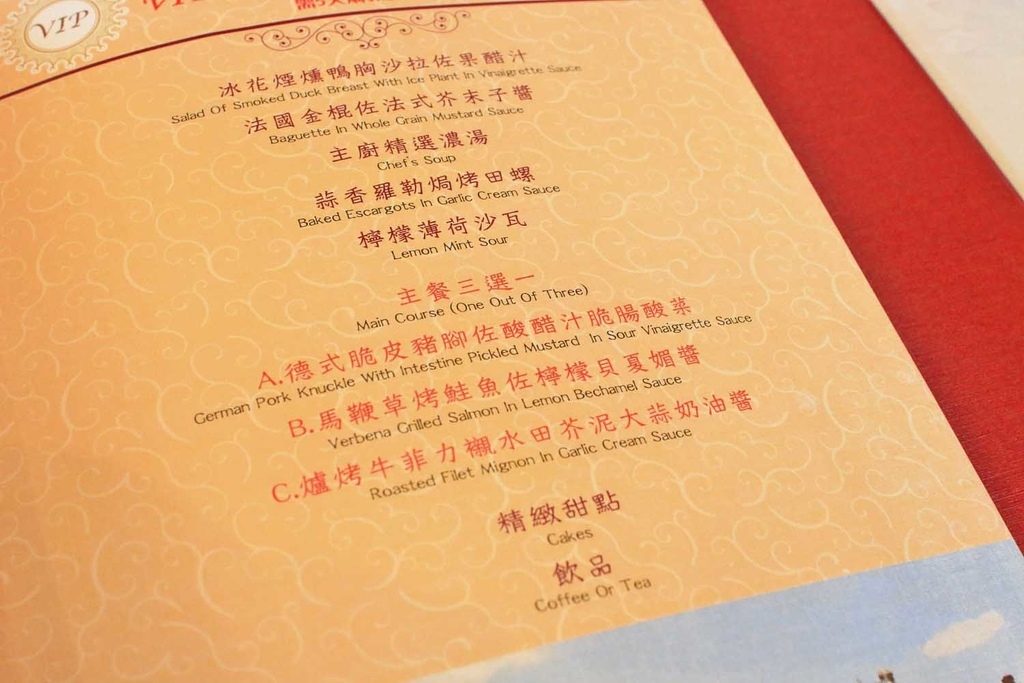 VIP
冰花煙燻鴨胸沙拉佐果醋汁
Salad Of Smoked Duck Breast With Ice Plant In Vinaigrette Sauce
法國金棍佐法式芥末子醬
Baguette In Whole Grain Mustard Sauce
主廚精選濃湯
Chef's Soup
蒜香羅勒焗烤田螺
Baked Escargots In Garlic Cream Sauce
檸檬薄荷沙瓦
Lemon Mint Sour
主餐三選一
Main Course (One Out Of Three)
A.德式脆皮豬腳佐酸醋汁脆腸酸菜
German Pork Knuckle With Intestine Pickled Mustard In Sour Vinaigrette Sauce
B.馬鞭草烤鮭魚佐檸檬貝夏媚醬
Verbena Grilled Salmon In Lemon Bechamel Sauce
C.爐烤牛菲力襯水田芥泥大蒜奶油醬
Roasted Filet Mignon In Garlic Cream Sauce
精緻甜點
Cakes
飲品
Coffee Or Tea